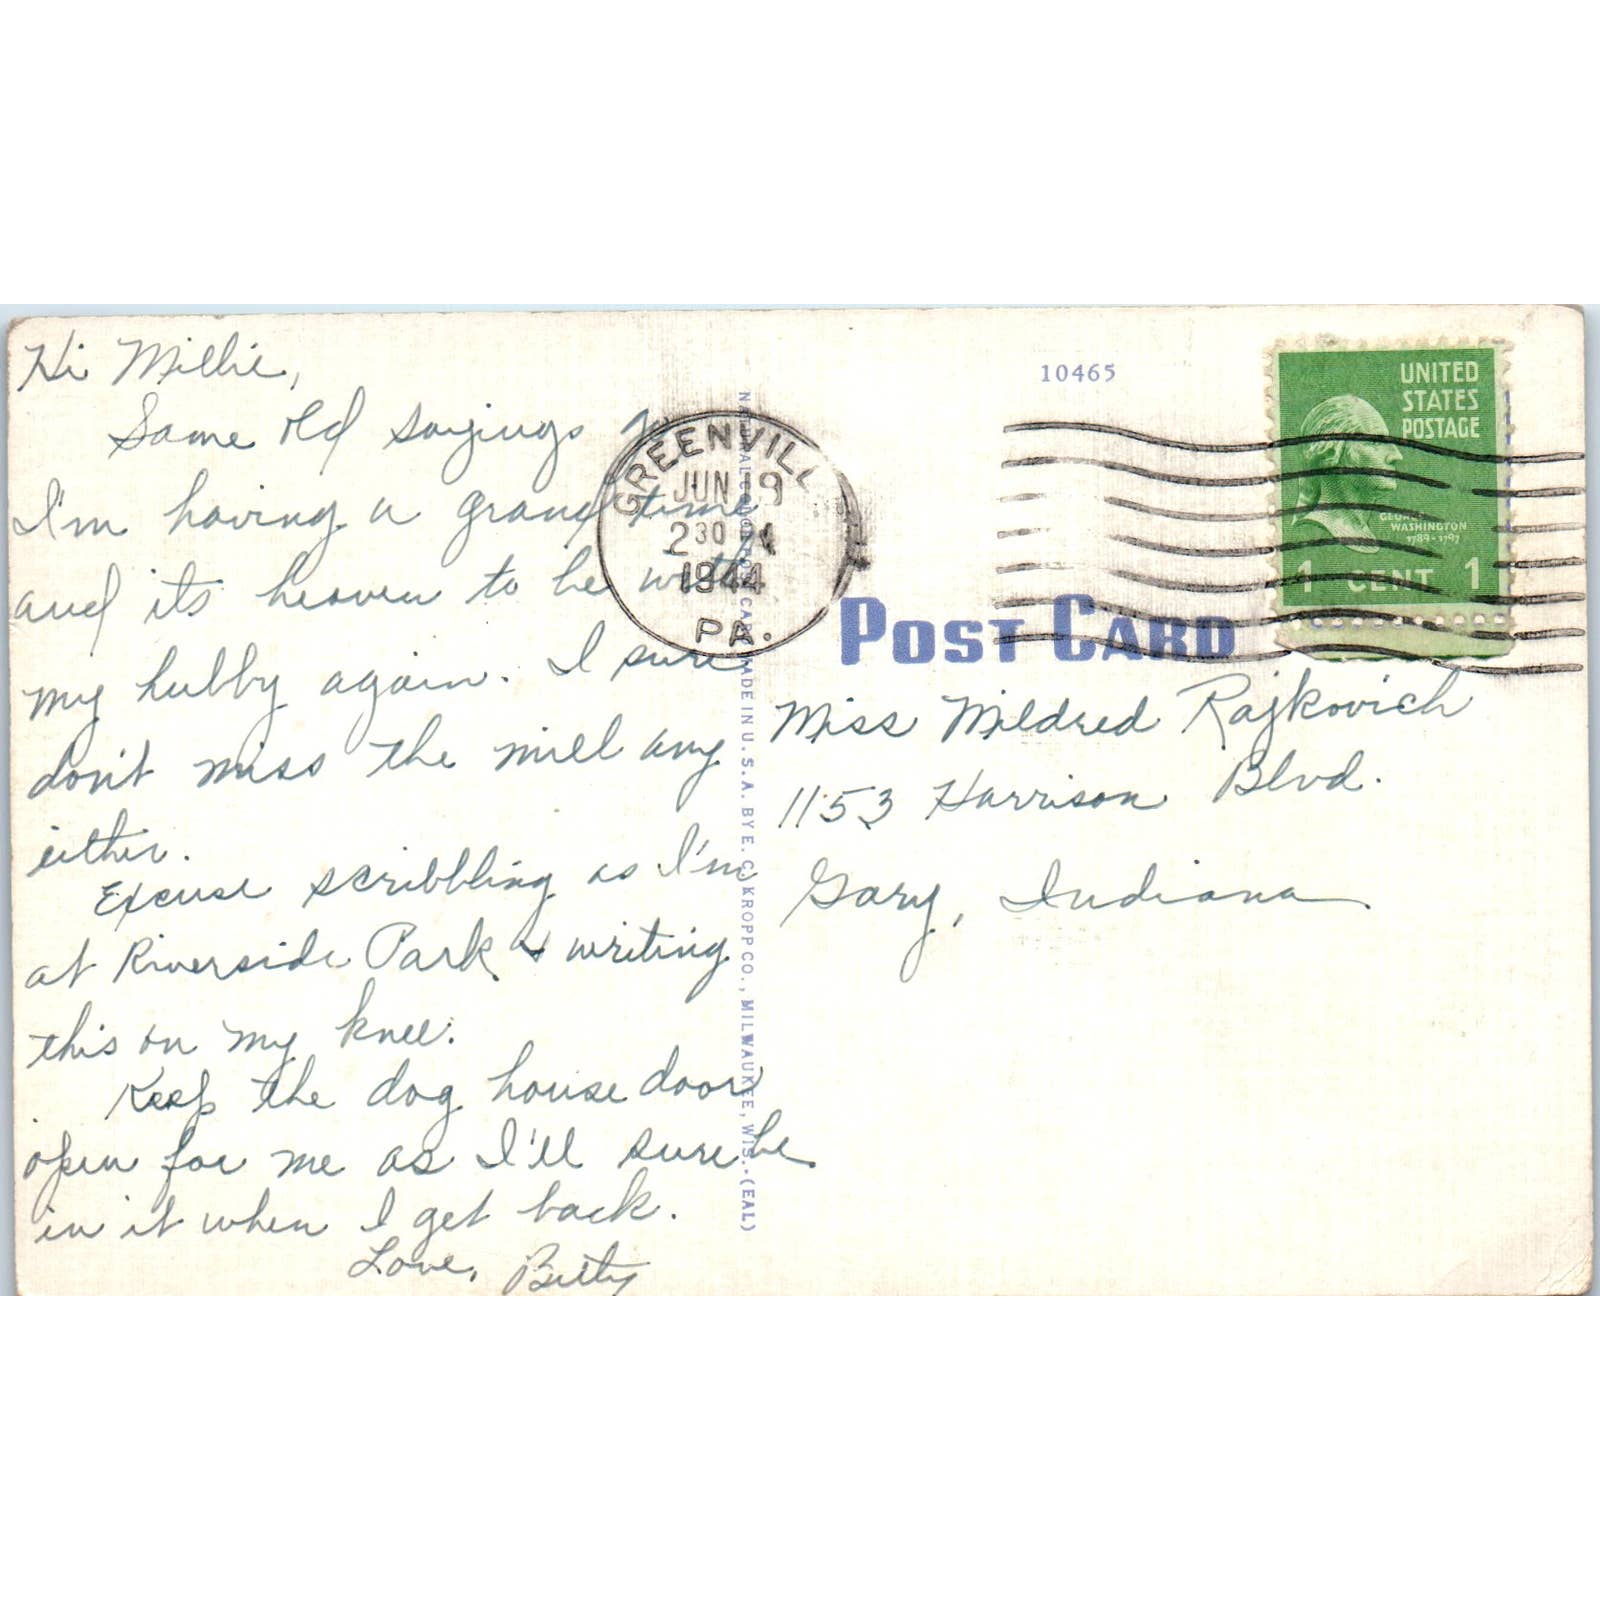 Hi Millie,
Same old sayings
I'm having a grand time
and its heaven to be with
my hubby again. I sure
don't miss the mill any
either.
Excuse scribbling as I'm
at Riverside Park & writing
this on my knee.
Keep the dog house door
open for me as I'll sure be
in it when I get back.
Love, Betty
GREENVILL
JUN 19
2 30
1944
PA.
NATURAL COLOR POST CARD MADE IN U.S.A. BY E. C. KROPP CO., MILWAUKEE, WIS. (EAL)
10465
UNITED
STATES
POSTAGE
GEORGE
WASHINGTON
1789-1797
1 CENT 1
POST CARD
Miss Mildred Rajkovich
1153 Harrison Blvd.
Gary, Indiana.